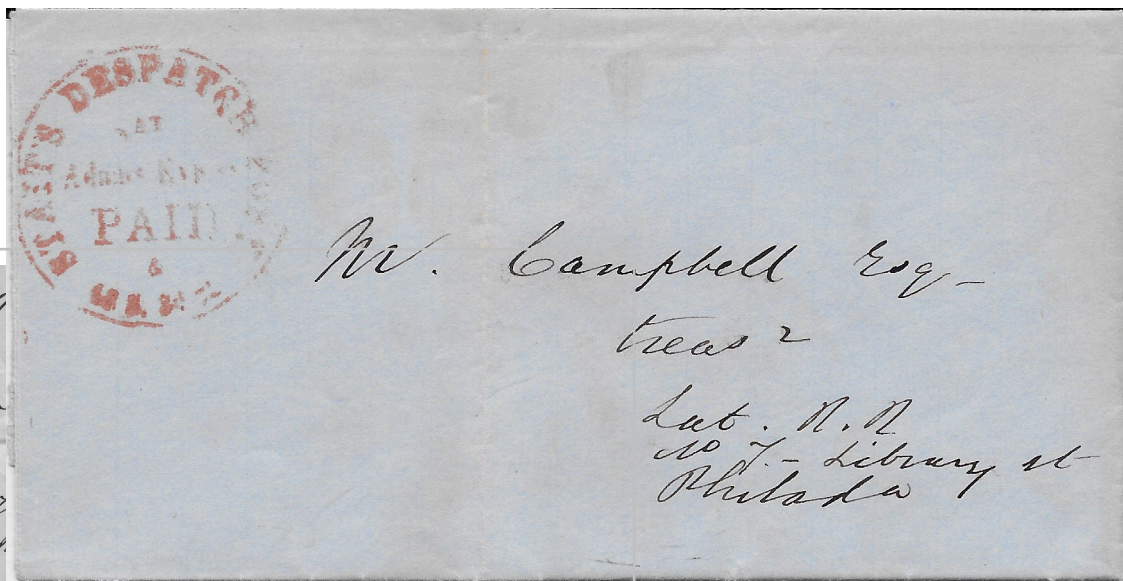 STAIT'S DESPATCH
AT
Adams Exp
PAID
&
M. Campbell Esq
treasr
Lat. R. R
No 7 - Library st
Philada